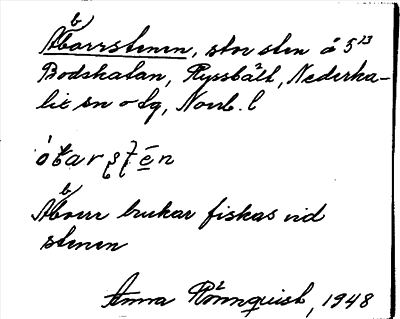 Abborrstenen, stor sten å 5¹³
Bodskatan, Ryssbält, Nederka-
lix sn o dg, Norrb. l
Abborr brukar fiskas vid
stenen
Anna Rönnquist, 1948